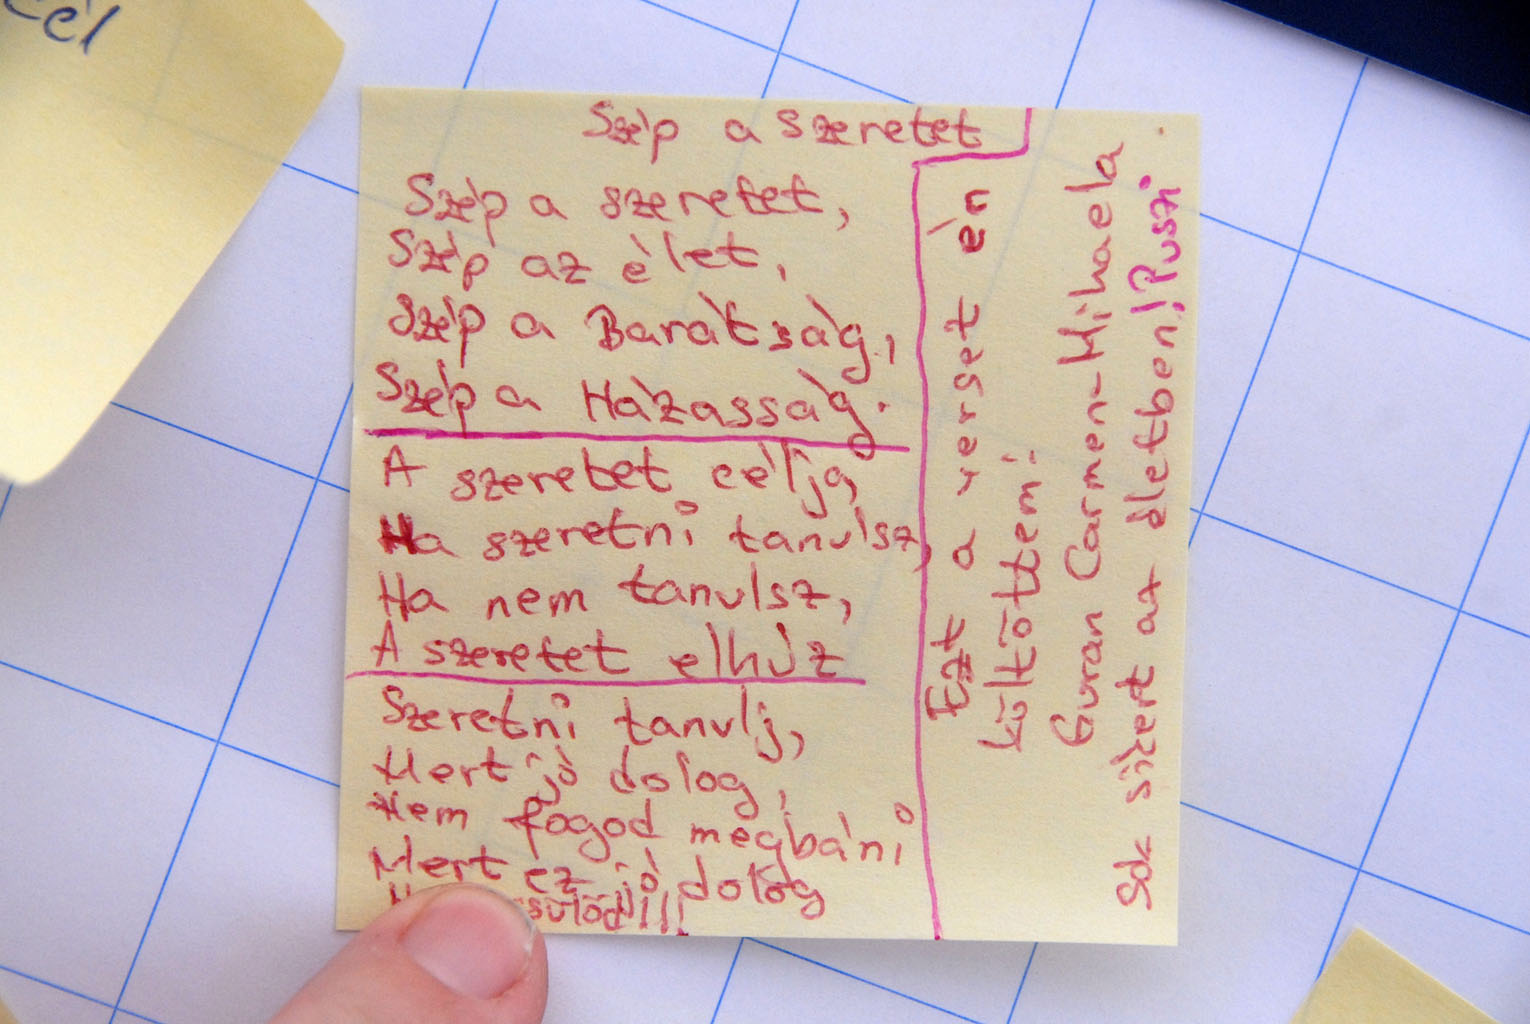 cél
Szép a szeretet
Szép a szeretet,
Szép az élet,
Szép a Barátság,
Szép a Házasság.
A szeretet célja,
Ha szeretni tanulsz,
Ha nem tanulsz,
A szeretet elhúz
Szeretni tanulj,
Mert jó dolog,
Nem fogod megbáni
Mert ez jó dolog
Ezt a verset én
költöttem:
Guran Carmen-Mihaela
Sok sikert az életben! Puszi